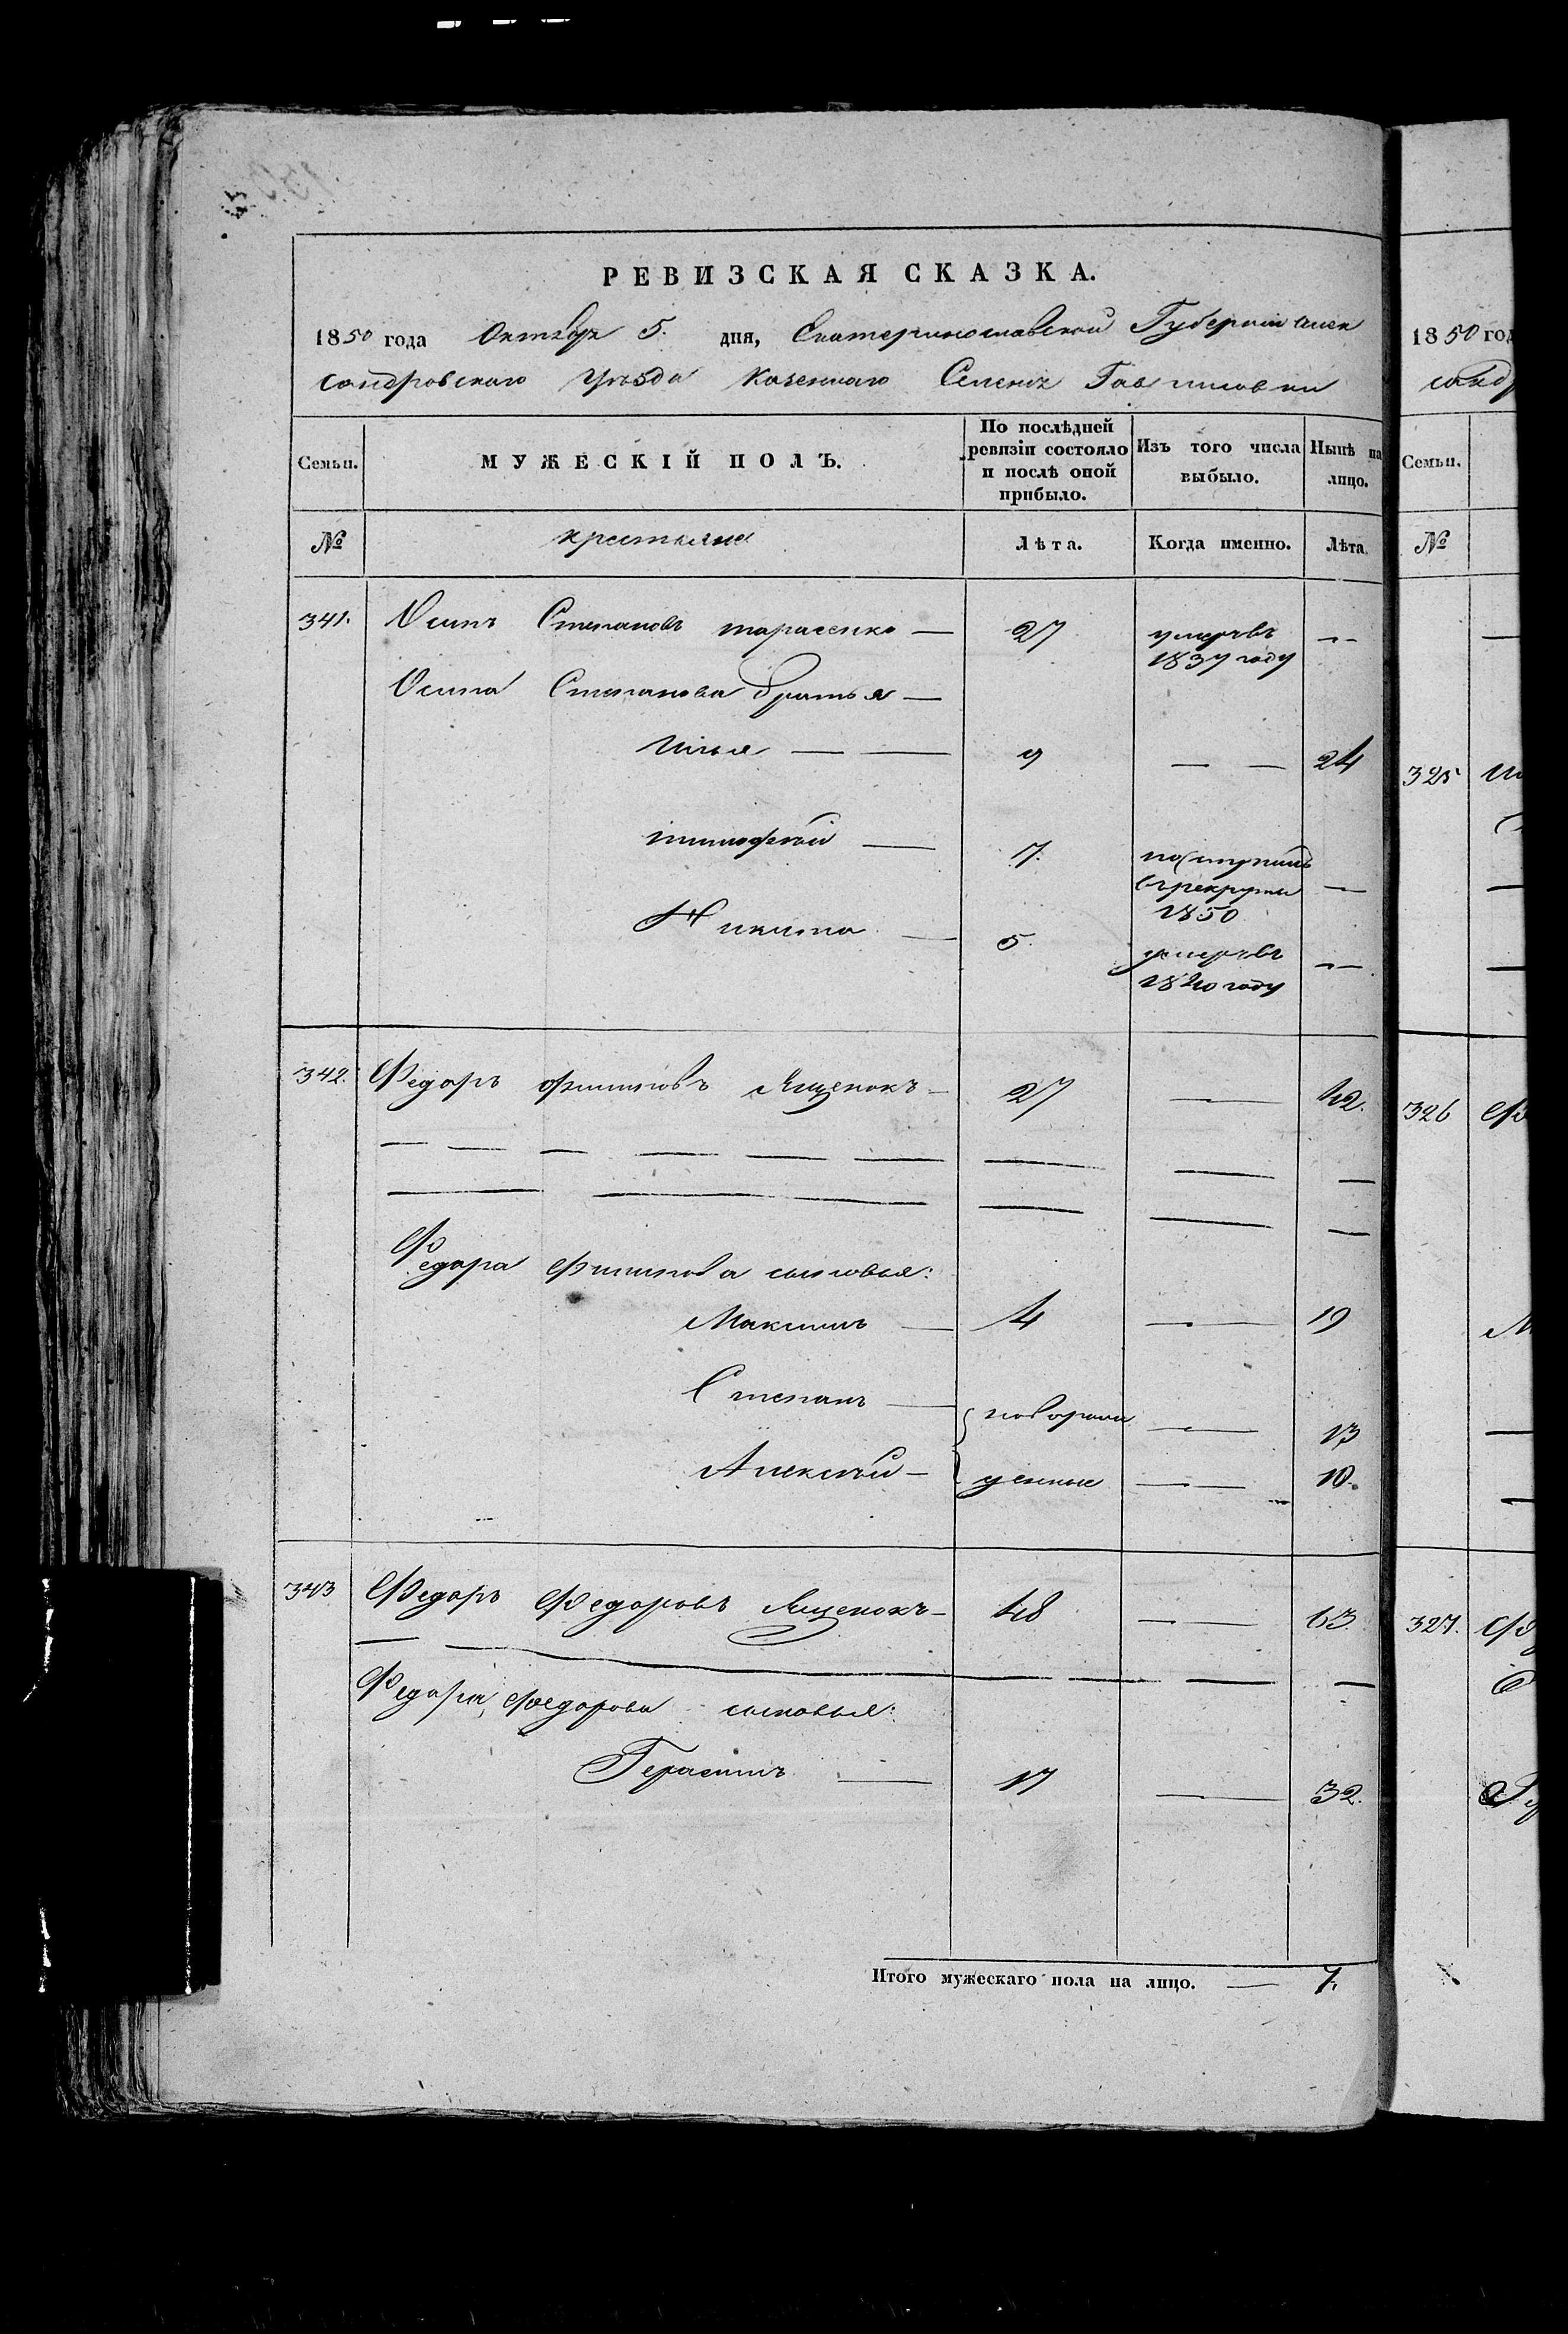 РЕВИЗСКАЯ СКАЗКА.
1850 года Октября 5. дня, Екатеринославской Губернии Алек
сандровскаго Уѣзда Казеннаго Селенія Гавриловки
Семьи. МУЖЕСКІЙ ПОЛЪ. По послѣдней ревизіи состояло и послѣ оной прибыло. Изъ того числа выбыло. Нынѣ на лицо.
№ крестьяне Лѣта. Когда именно. Лѣта.
341. Осипъ Степановъ тарасенко — 27 умеръ въ 1837 году —
Осипа Степанова братья —
Илья — — 9 — — 24
тимофѣй — 7. поступилъ въ рекруты 1850 —
Никита — 5. умеръ въ 1840 году —
342. Федоръ Филиповъ Ященокъ — 27 — 42.
Федора Филипова сыновья:
Максимъ — 4 — 19
Степанъ — новорож — 13
Алексѣй — денные — 10.
343 Федоръ Федоровъ Ященокъ — 48 — 63
Федора Федорова сыновья:
Герасимъ — 17 — 32.
Итого мужескаго пола на лицо. — 7.
1850 год
санд
Семьи.
№
325
326
327.